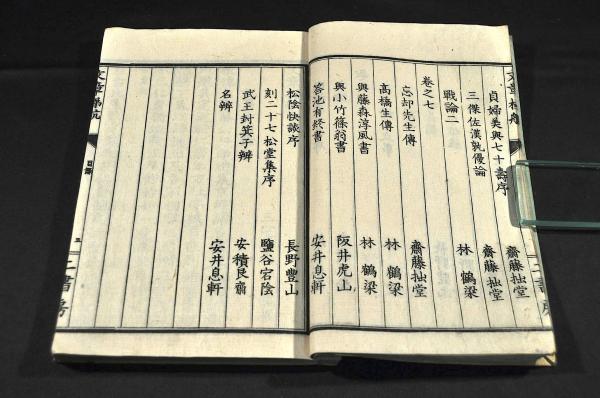 貞婦美與七十壽序 齋藤拙堂
三傑佐漢孰優論 齋藤拙堂
戰論二 林 鶴梁
卷之七
忘却先生傳 齋藤拙堂
高橋生傳 林 鶴梁
與藤森淳風書 林 鶴梁
與小竹篠翁書 阪井虎山
答池有終書 安井息軒
松陰快談序 長野豐山
刻二十七松堂集序 鹽谷宕陰
武王封箕子辨 安積艮齋
名辨 安井息軒
目錄
五
二書房